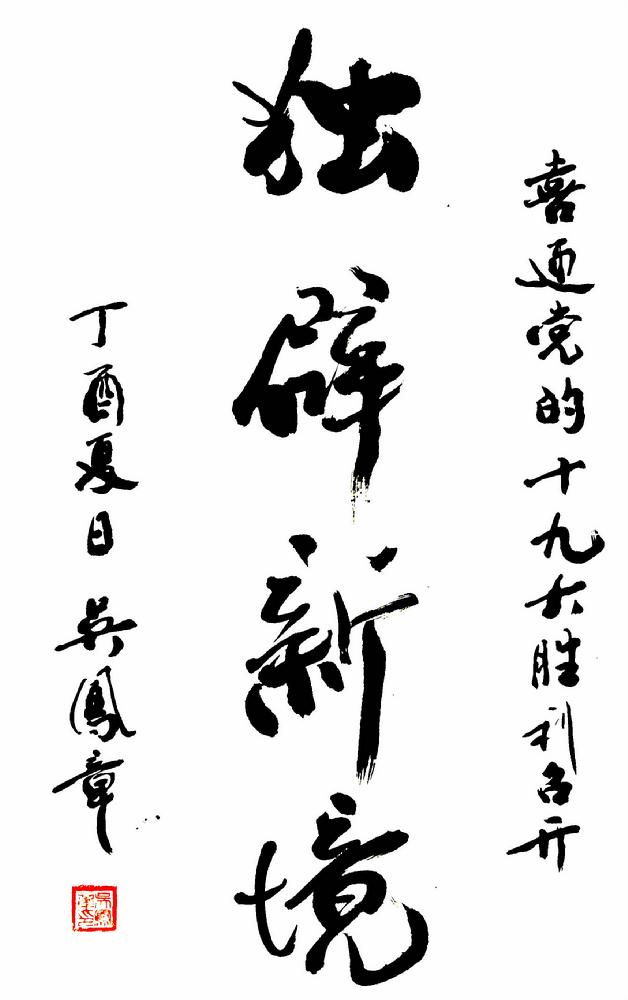 喜迎党的十九大胜利召开
独辟新境
丁酉夏日 吴鳳章